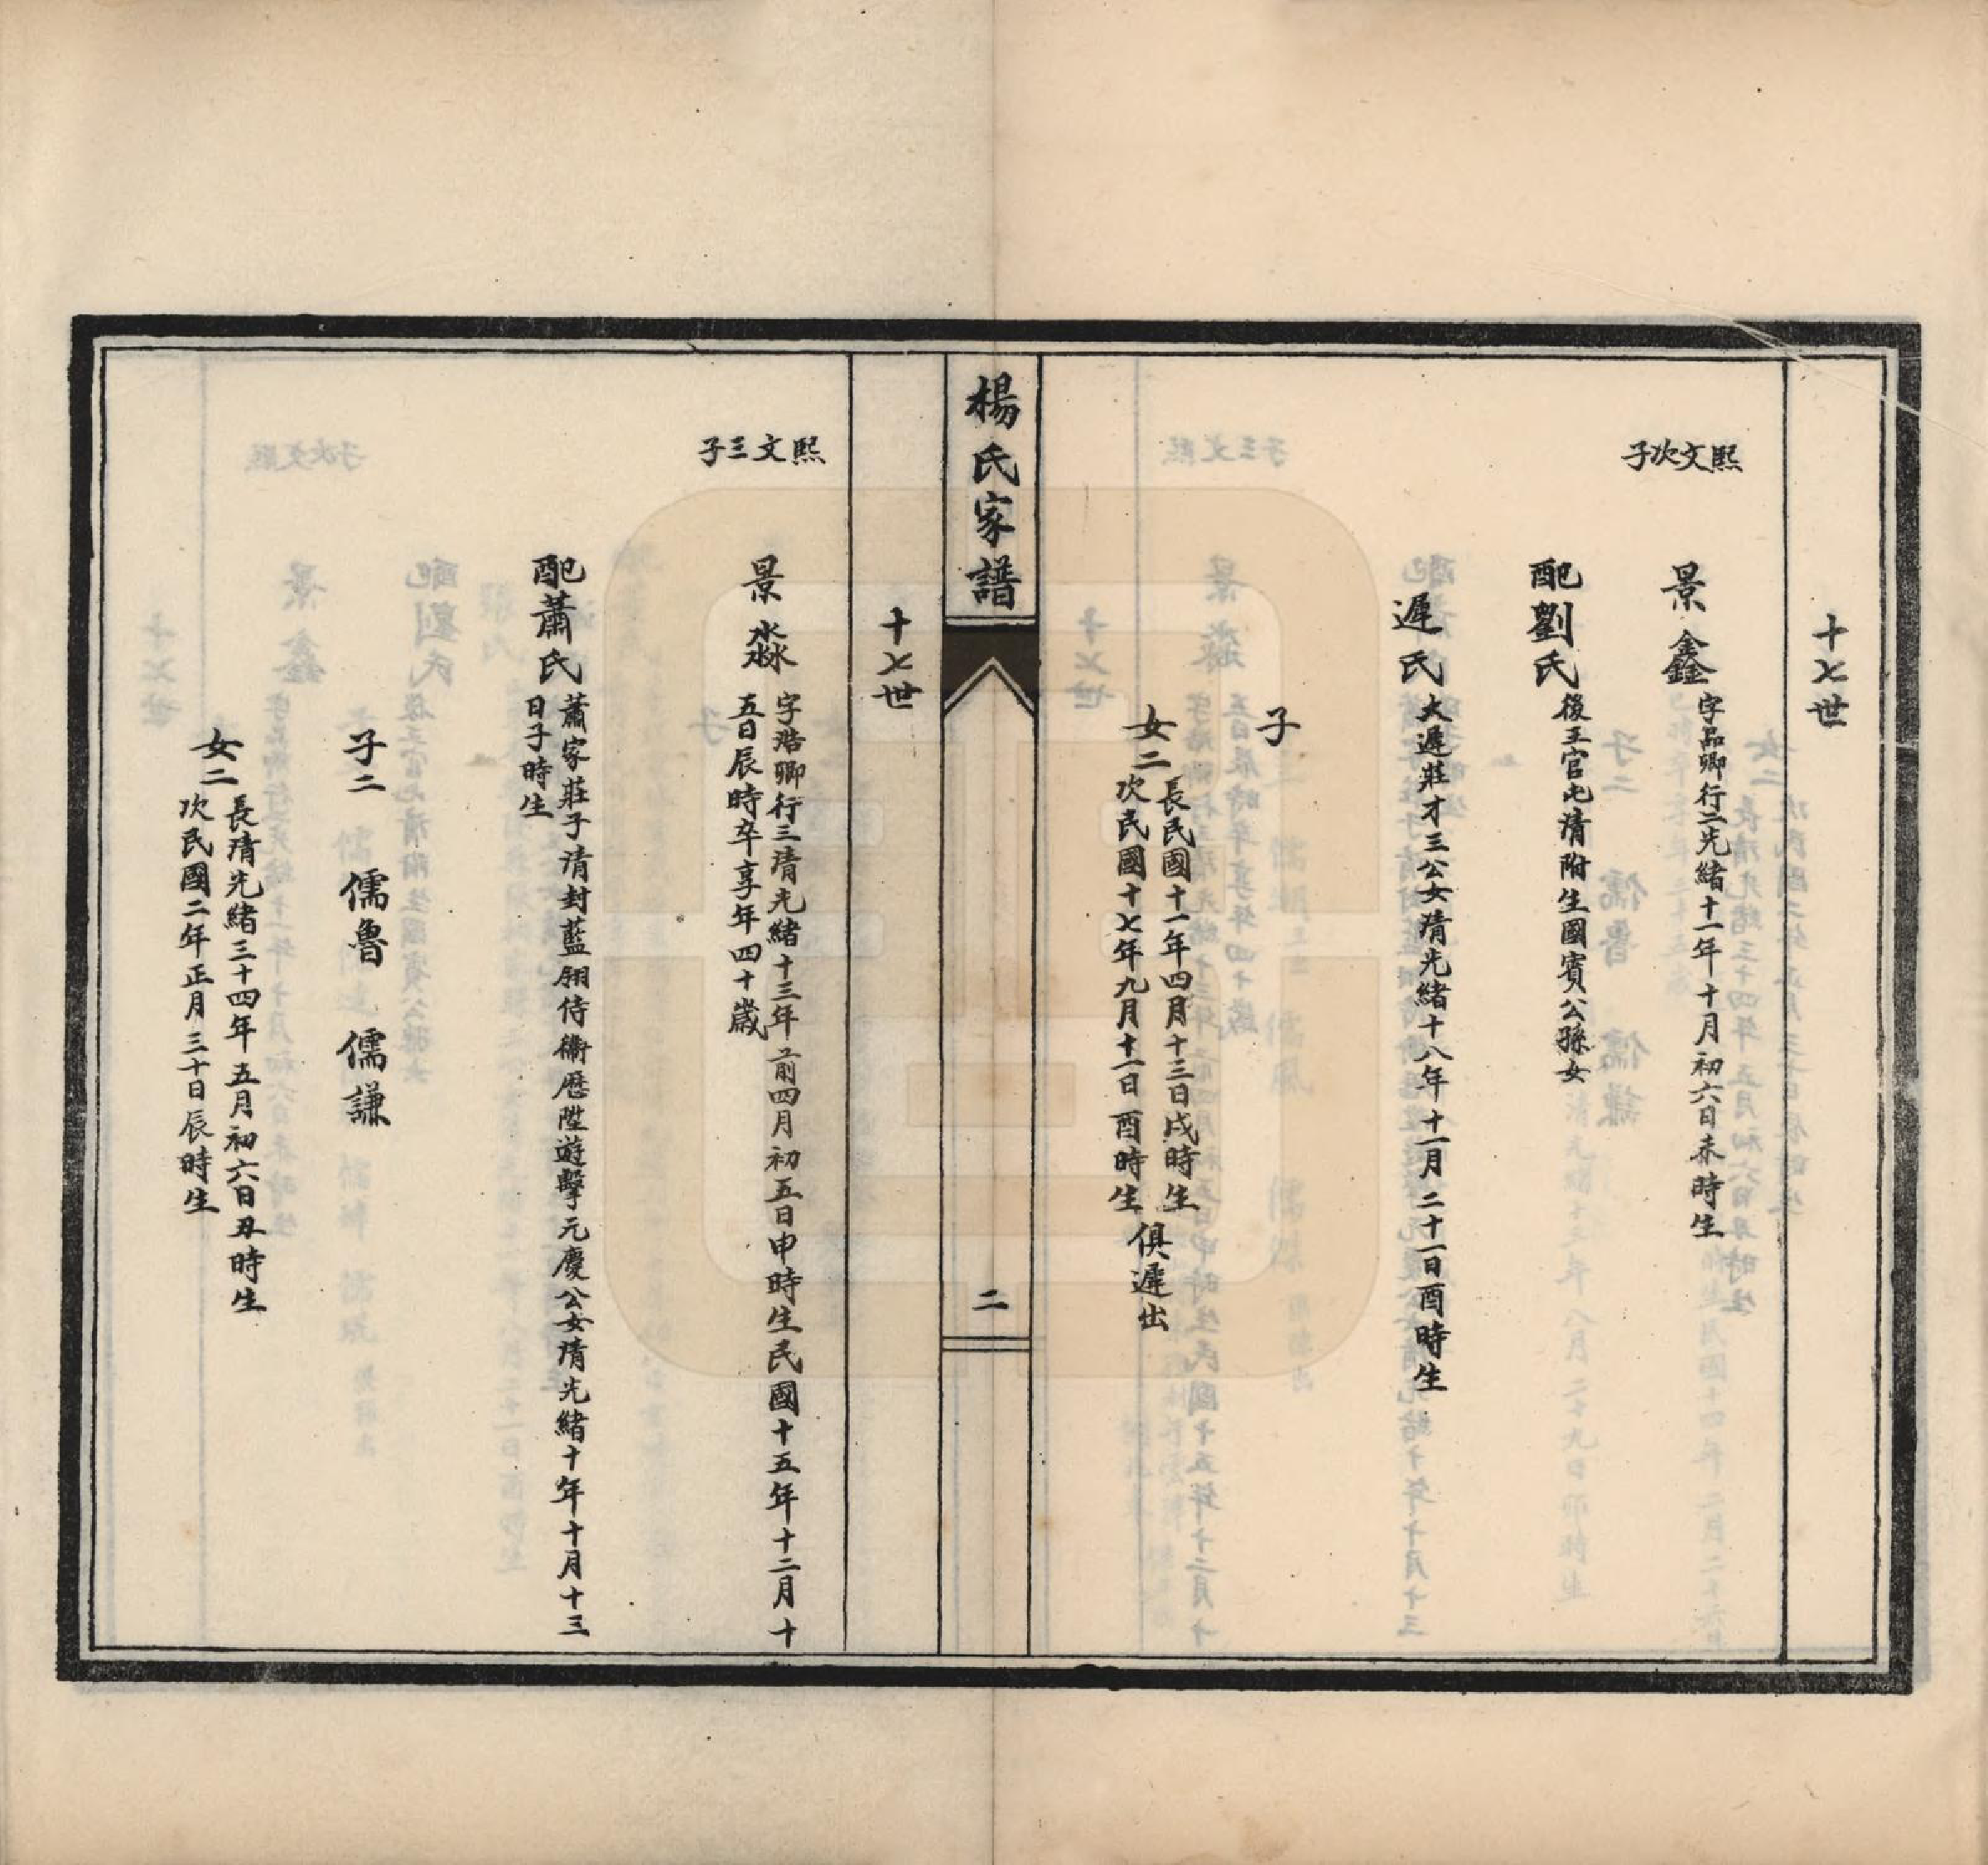 十七世
熙文次子
景鑫
字品卿行二光緒十一年十月初六日未時生
配劉氏
後王官屯清附生國賓公孫女
遲氏
大遲莊才三公女清光緒十八年十一月二十一日酉時生
子
女二
長民國十一年四月十三日戌時生
次民國十七年九月十一日酉時生
俱遲出
楊氏家譜
二
十七世
熙文三子
景淼
字浩卿行三清光緒十三年前四月初五日申時生民國十五年十二月十
五日辰時卒享年四十歲
配蕭氏
蕭家莊子清封藍翎侍衛歷陞遊擊元慶公女清光緒十年十月十三
日子時生
子二
儒魯 儒謙
女二
長清光緒三十四年五月初六日丑時生
次民國二年正月三十日辰時生